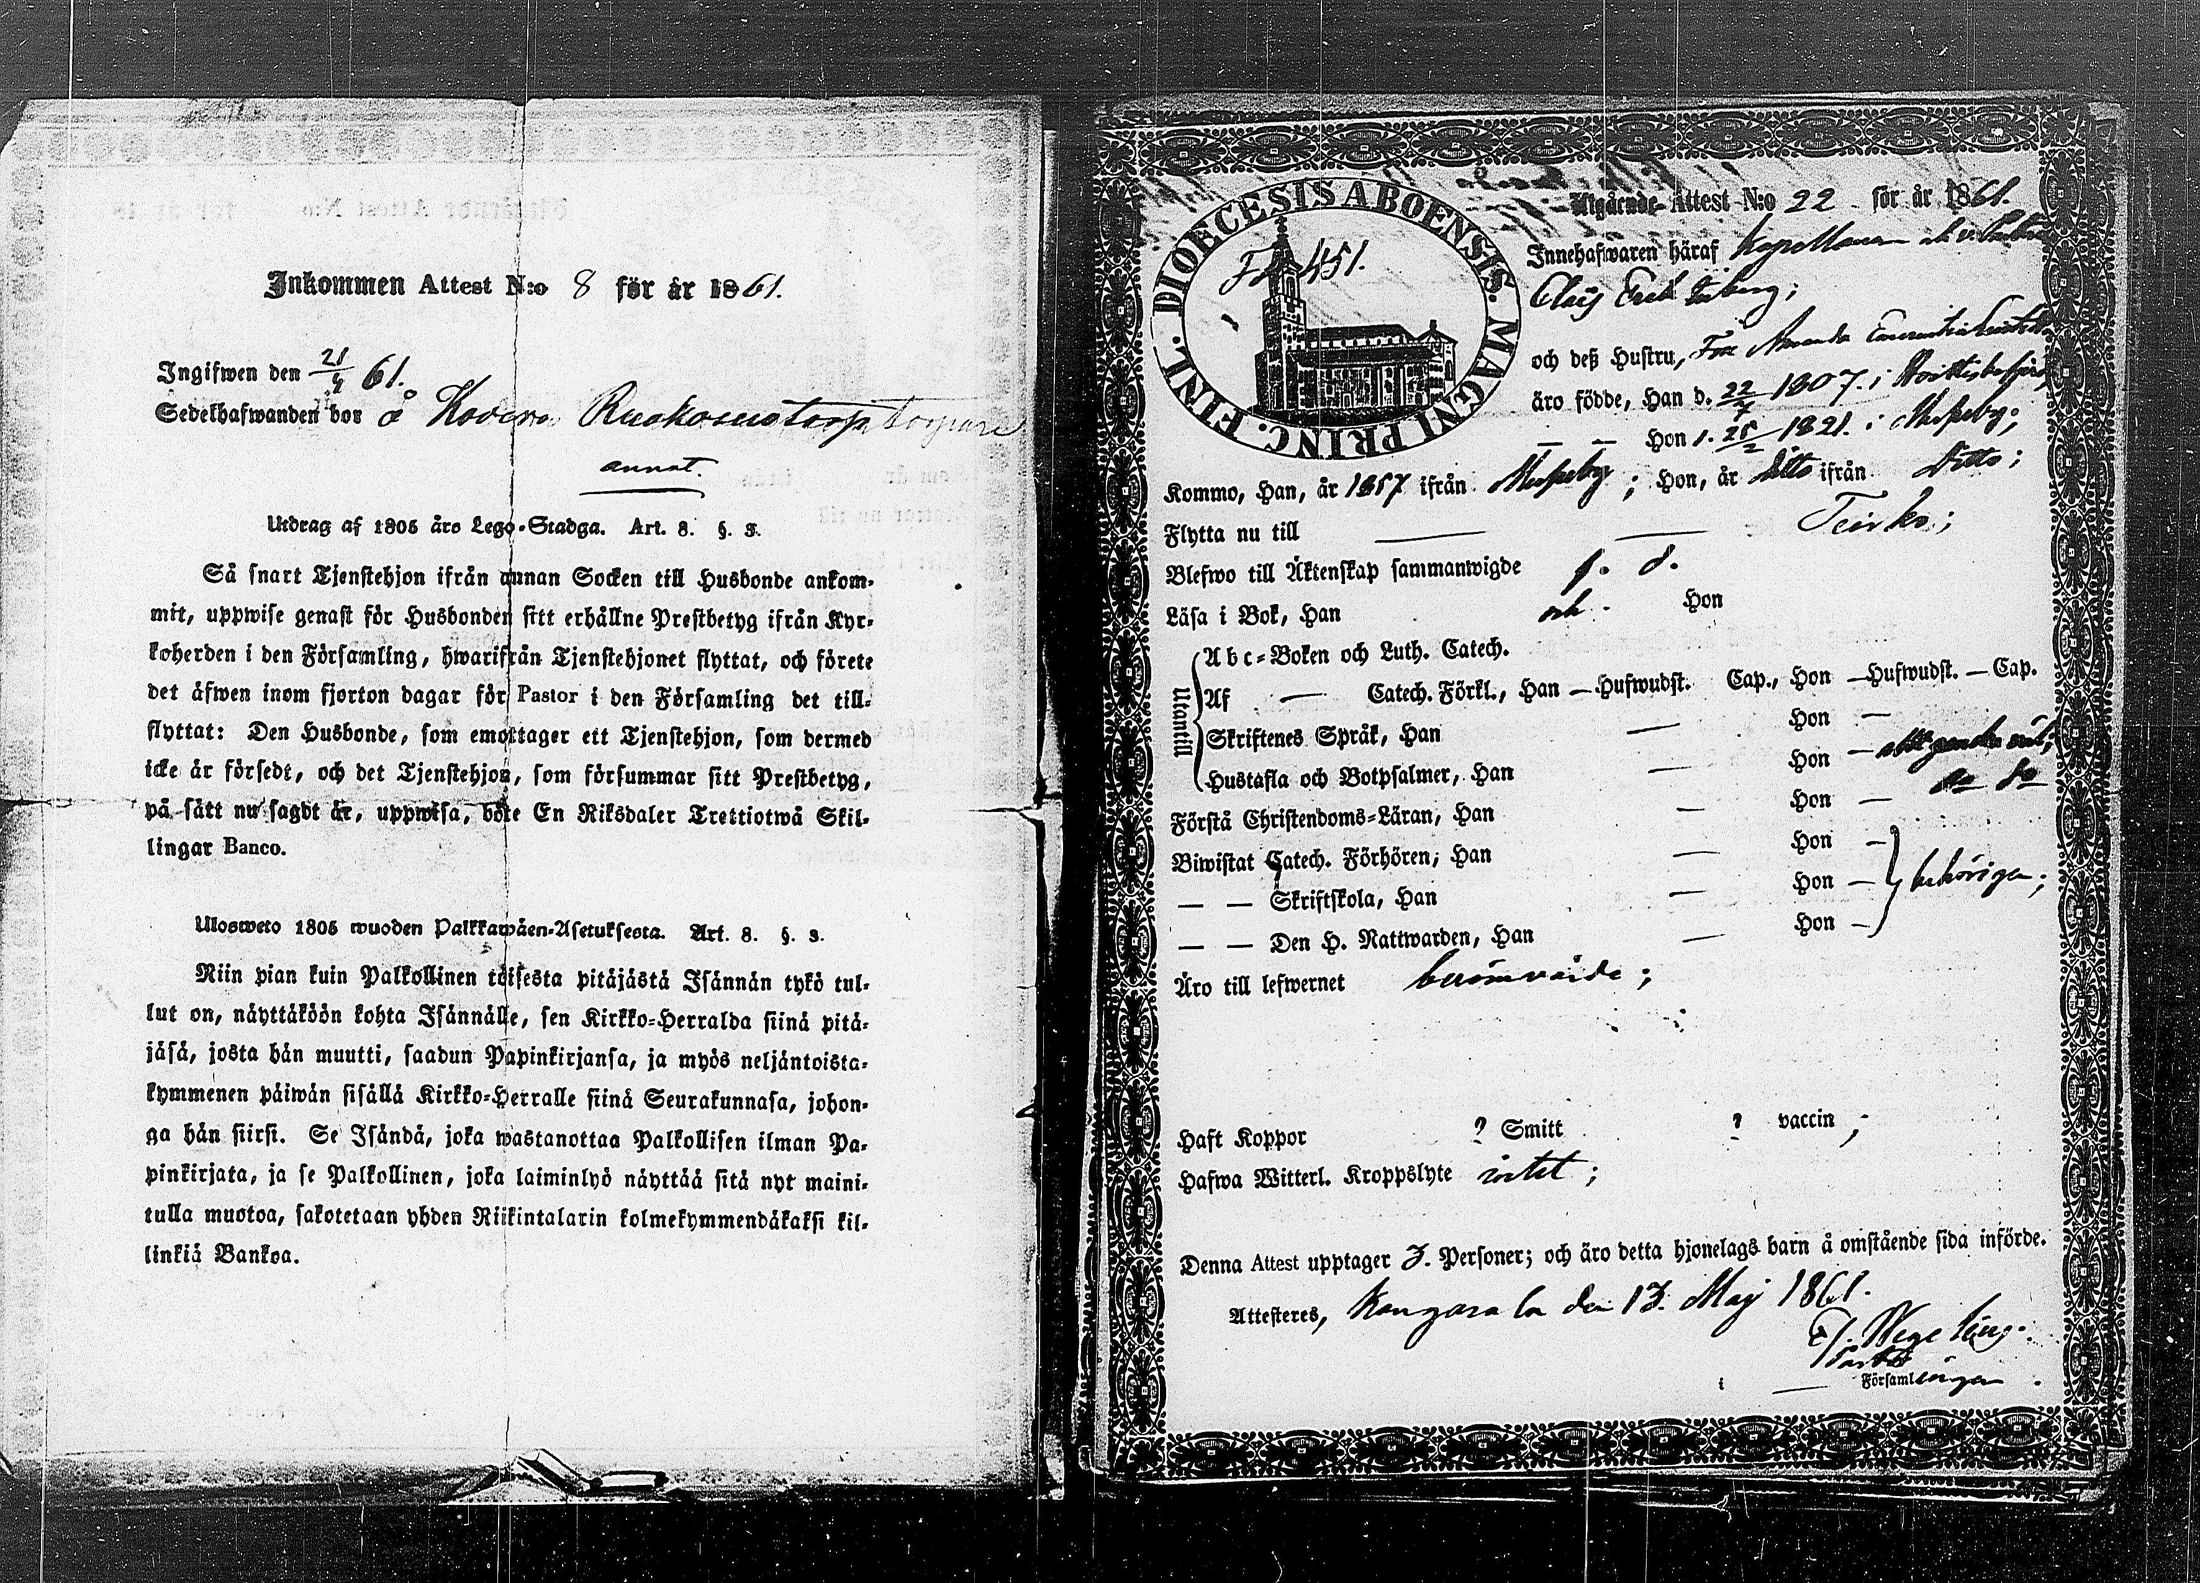 Inkommen Attest N:o 8 för år 1861.
Ingifwen den 21/4 61.
Sedelhafwanden bor å Ruokomastorp
annat.
Utdrag af 1805 års Lego-Stadga. Art. 8. §. 3.
Så snart Tjenstehjon ifrån annan Socken till Husbonde ankom-
mit, uppwise genast för Husbonden sitt erhållne Prestbetyg ifrån Kyr-
koherden i den Församling, hwarifrån Tjenstehjonet flyttat, och förete
det äfwen inom fjorton dagar för Pastor i den Församling det till-
flyttat: Den Husbonde, som emottager ett Tjenstehjon, som dermed
icke är försedt, och det Tjenstehjon, som försummar sitt Prestbetyg,
på sätt nu sagdt är, uppwisa, böte En Riksdaler Trettiotwå Skil-
lingar Banco.
Ulosweto 1805 wuoden Palkkawäen-Asetuksesta. Art. 8. §. 3.
Niin pian kuin Palkollinen toisesta pitäjästä Isännän tykö tul-
lut on, näyttäköön kohta Isännälle, sen Kirkko-Herralda siinä pitä-
jäsä, josta hän muutti, saadun Papinkirjansa, ja myös neljäntoista-
kymmenen päiwän sisällä Kirkko-Herralle siinä Seurakunnasa, johon-
ga hän siirsi. Se Isändä, joka wastanottaa Palkollisen ilman Pa-
pinkirjata, ja se Palkollinen, joka laiminlyö näyttää sitä nyt maini-
tulla muotoa, sakotetaan yhden Riikintalarin kolmekymmendäkaksi kil-
linkiä Bankoa.
DIOECESIS ABOENSIS. MAGNI PRINC. FINL.
451.
Utgående Attest N:o 22 för år 1861.
Innehafwaren häraf Kapellanen
Claës Erik
och deß Hustru, Amanda
äro födde, Han d. 22/7 1807. i
— — Hon d. 25/2 1821. i
Kommo, Han, år 1857 ifrån ; Hon, år ditto ifrån Ditto;
Flytta nu till — — ;
Blefwo till Äktenskap sammanwigde
Läsa i Bok, Han och Hon
Utantill
Abc-Boken och Luth. Catech.
Af — Catech. Förkl., Han — Hufwudst. Cap., Hon — Hufwudst. — Cap.
Skriftenes Språk, Han — Hon —
Hustafla och Botpsalmer, Han — Hon —
Förstå Christendoms-Läran, Han — Hon —
Biwistat Catech. Förhören, Han — Hon —
— — Skriftskola, Han — Hon — behörigen;
— — Den H. Nattwarden, Han — Hon —
Äro till lefwernet berömvärde;
Haft Koppor ? Smitt ? vaccin ;
Hafwa Witterl. Kroppslyte intet;
Denna Attest upptager 3. Personer; och äro detta hjonelags barn å omstående sida införde.
Attesteres, Kangasala den 13. Maj 1861.
i — Församlingen.